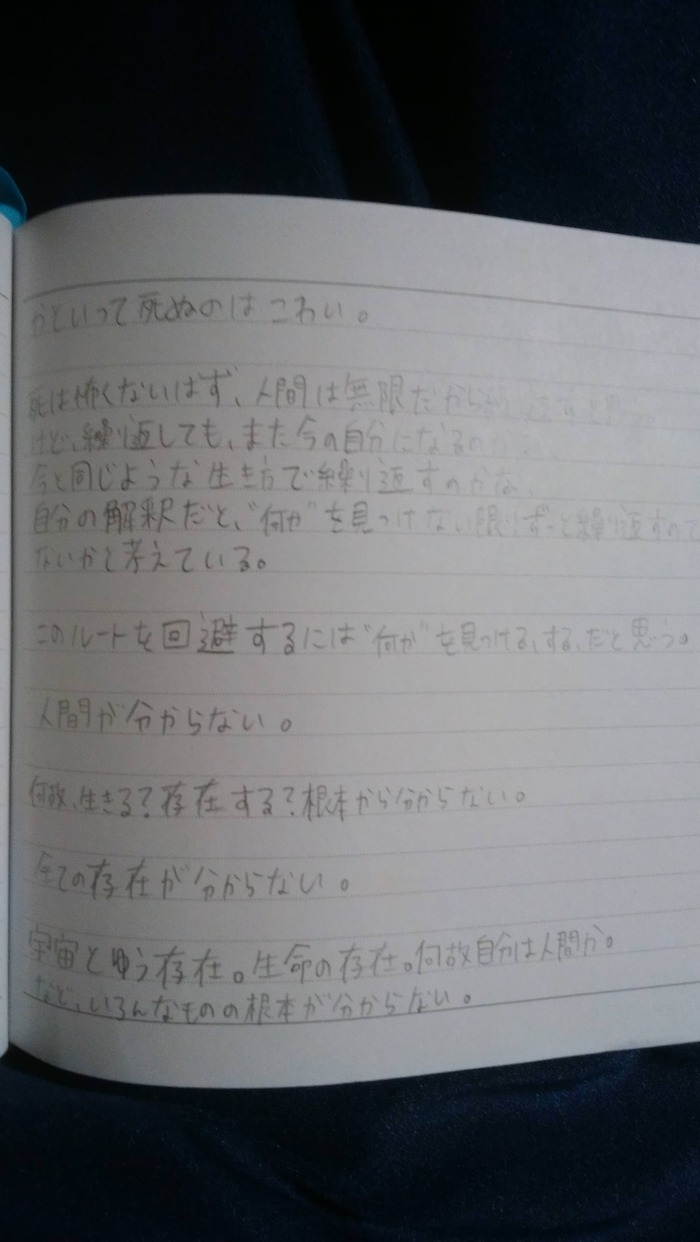 かといって死ぬのはこわい。
死は怖くないはず、人間は無限だから繰り返すと思う。
けど、繰り返しても、また今の自分になるのかな、
今と同じような生き方で繰り返すのかな、
自分の解釈だと、"何か"を見つけない限りずーと繰り返すので
ないかと考えている。
このルートを回避するには"何か"を見つける、する、だと思う。
人間が分からない。
何故、生きる?存在する?根本から分からない。
全ての存在が分からない。
宇宙とゆう存在。生命の存在。何故自分は人間か。
など、いろんなものの根本が分からない。